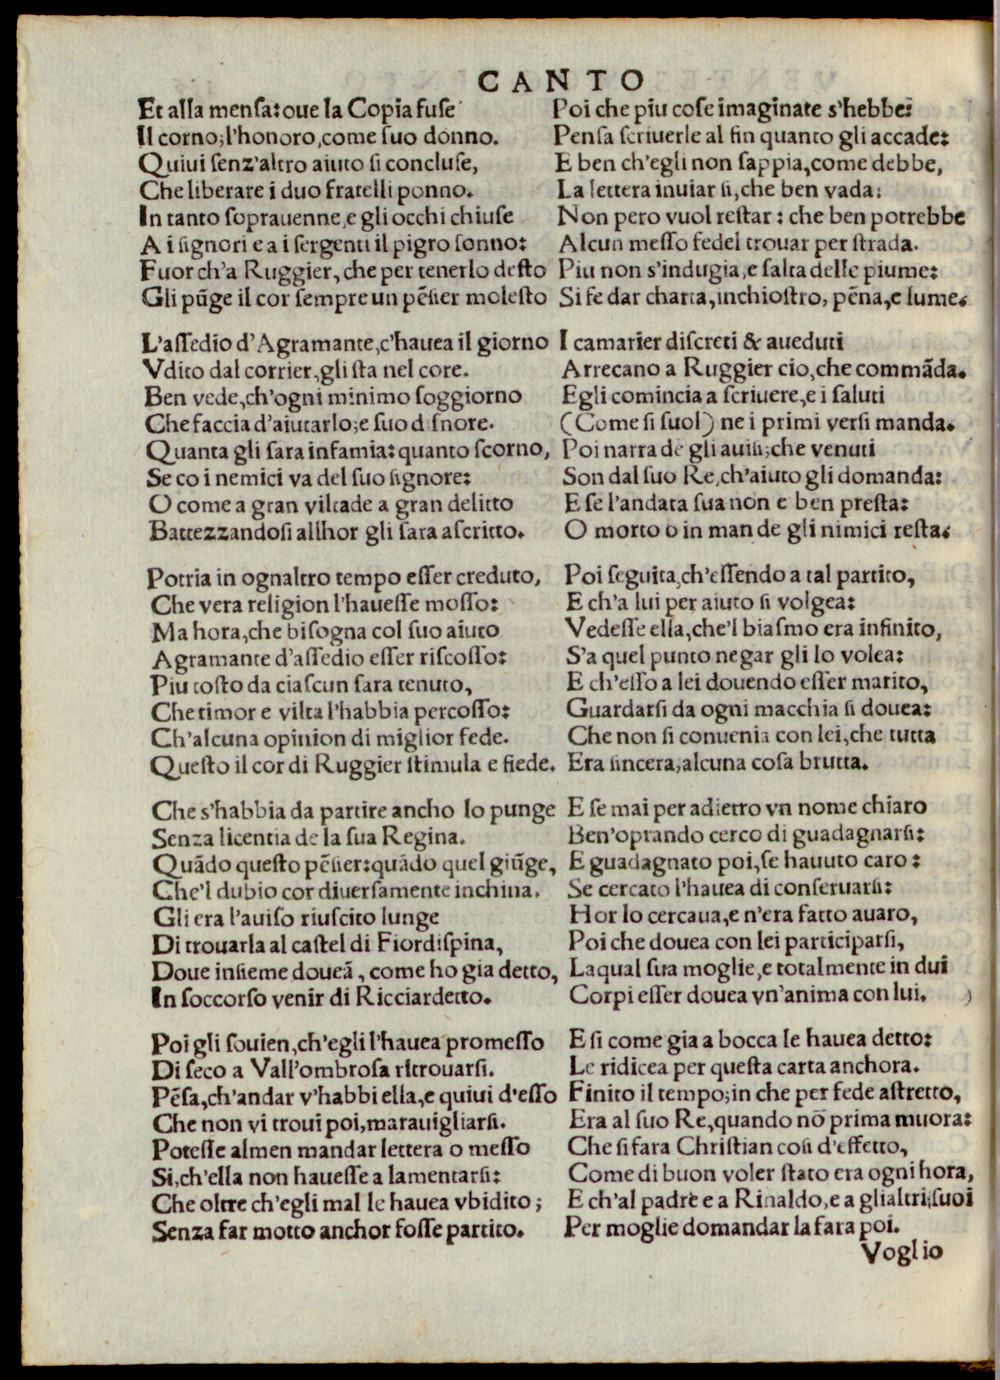 CANTO
Et alla mensa: oue la Copia fuse
Il corno; l'honoro, come suo donno.
Quiui senz'altro aiuto si concluse,
Che liberare i duo fratelli ponno.
In tanto soprauenne, e gli occhi chiuse
A i signori e a i sergenti il pigro sonno:
Fuor ch'a Ruggier, che per tenerlo desto
Gli pũge il cor sempre un pẽsier molesto
L'assedio d'Agramante, c'hauea il giorno
Vdito dal corrier, gli sta nel core.
Ben vede, ch'ogni minimo soggiorno
Che faccia d'aiutarlo; e suo disnore.
Quanta gli sara infamia: quanto scorno,
Se co i nemici va del suo signore:
O come a gran viltade a gran delitto
Battezzandosi allhor gli sara ascritto.
Potria in ognaltro tempo esser creduto,
Che vera religion l'hauesse mosso:
Ma hora, che bisogna col suo aiuto
Agramante d'assedio esser riscosso:
Piu tosto da ciascun sara tenuto,
Che timor e vilta l'habbia percosso:
Ch'alcuna opinion di miglior fede.
Questo il cor di Ruggier stimula e fiede.
Che s'habbia da partire ancho lo punge
Senza licentia de la sua Regina.
Quãdo questo pẽsier: quãdo quel giũge,
Che'l dubio cor diuersamente inchina.
Gli era l'auiso riuscito lunge
Di trouarla al castel di Fiordispina,
Doue insieme doueã, come ho gia detto,
In soccorso venir di Ricciardetto.
Poi gli souien, ch'egli l'hauea promesso
Di seco a Vall'ombrosa ritrouarsi.
Pẽsa, ch'andar v'habbi ella, e quiui d'esso
Che non vi troui poi, marauigliarsi.
Potesse almen mandar lettera o messo
Si, ch'ella non hauesse a lamentarsi:
Che oltre ch'egli mal le hauea vbidito;
Senza far motto anchor fosse partito.
Poi che piu cose imaginate s'hebbe:
Pensa scriuerle al fin quanto gli accade:
E ben ch'egli non sappia, come debbe,
La lettera inuiar si, che ben vada:
Non pero vuol restar: che ben potrebbe
Alcun messo fedel trouar per strada.
Piu non s'indugia, e salta delle piume:
Si fe dar charta, inchiostro, pẽna, e lume.
I camarier discreti & aueduti
Arrecano a Ruggier cio, che commãda.
Egli comincia a scriuere, e i saluti
(Come si suol) ne i primi versi manda.
Poi narra de gli auisi; che venuti
Son dal suo Re, ch'aiuto gli domanda:
E se l'andata sua non e ben presta:
O morto o in man de gli nimici resta.
Poi seguita, ch'essendo a tal partito,
E ch'a lui per aiuto si volgea:
Vedesse ella, che'l biasmo era infinito,
S'a quel punto negar gli lo volea:
E ch'esso a lei douendo esser marito,
Guardarsi da ogni macchia si douea:
Che non si conuenia con lei, che tutta
Era sincera, alcuna cosa brutta.
E se mai per adietro vn nome chiaro
Ben'oprando cerco di guadagnarsi:
E guadagnato poi, se hauuto caro:
Se cercato l'hauea di conseruarsi:
Hor lo cercaua, e n'era fatto auaro,
Poi che douea con lei participarsi,
Laqual sua moglie, e totalmente in dui
Corpi esser douea vn'anima con lui.
E si come gia a bocca le hauea detto:
Le ridicea per questa carta anchora.
Finito il tempo; in che per fede astretto,
Era al suo Re, quando nõ prima muora:
Che si fara Christian cosi d'effetto,
Come di buon voler stato era ogni hora,
E ch'al padre e a Rinaldo, e a glialtri suoi
Per moglie domandar la fara poi.
Voglio